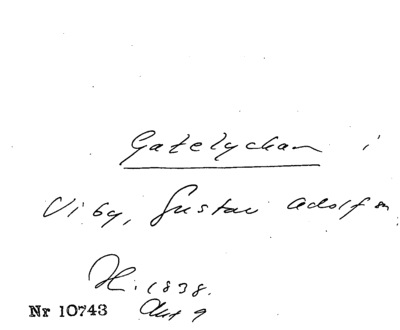 Gatelyckan i
Viby, Gustav Adolf sn,
H. 1838.
Nr 10743 Akt 9